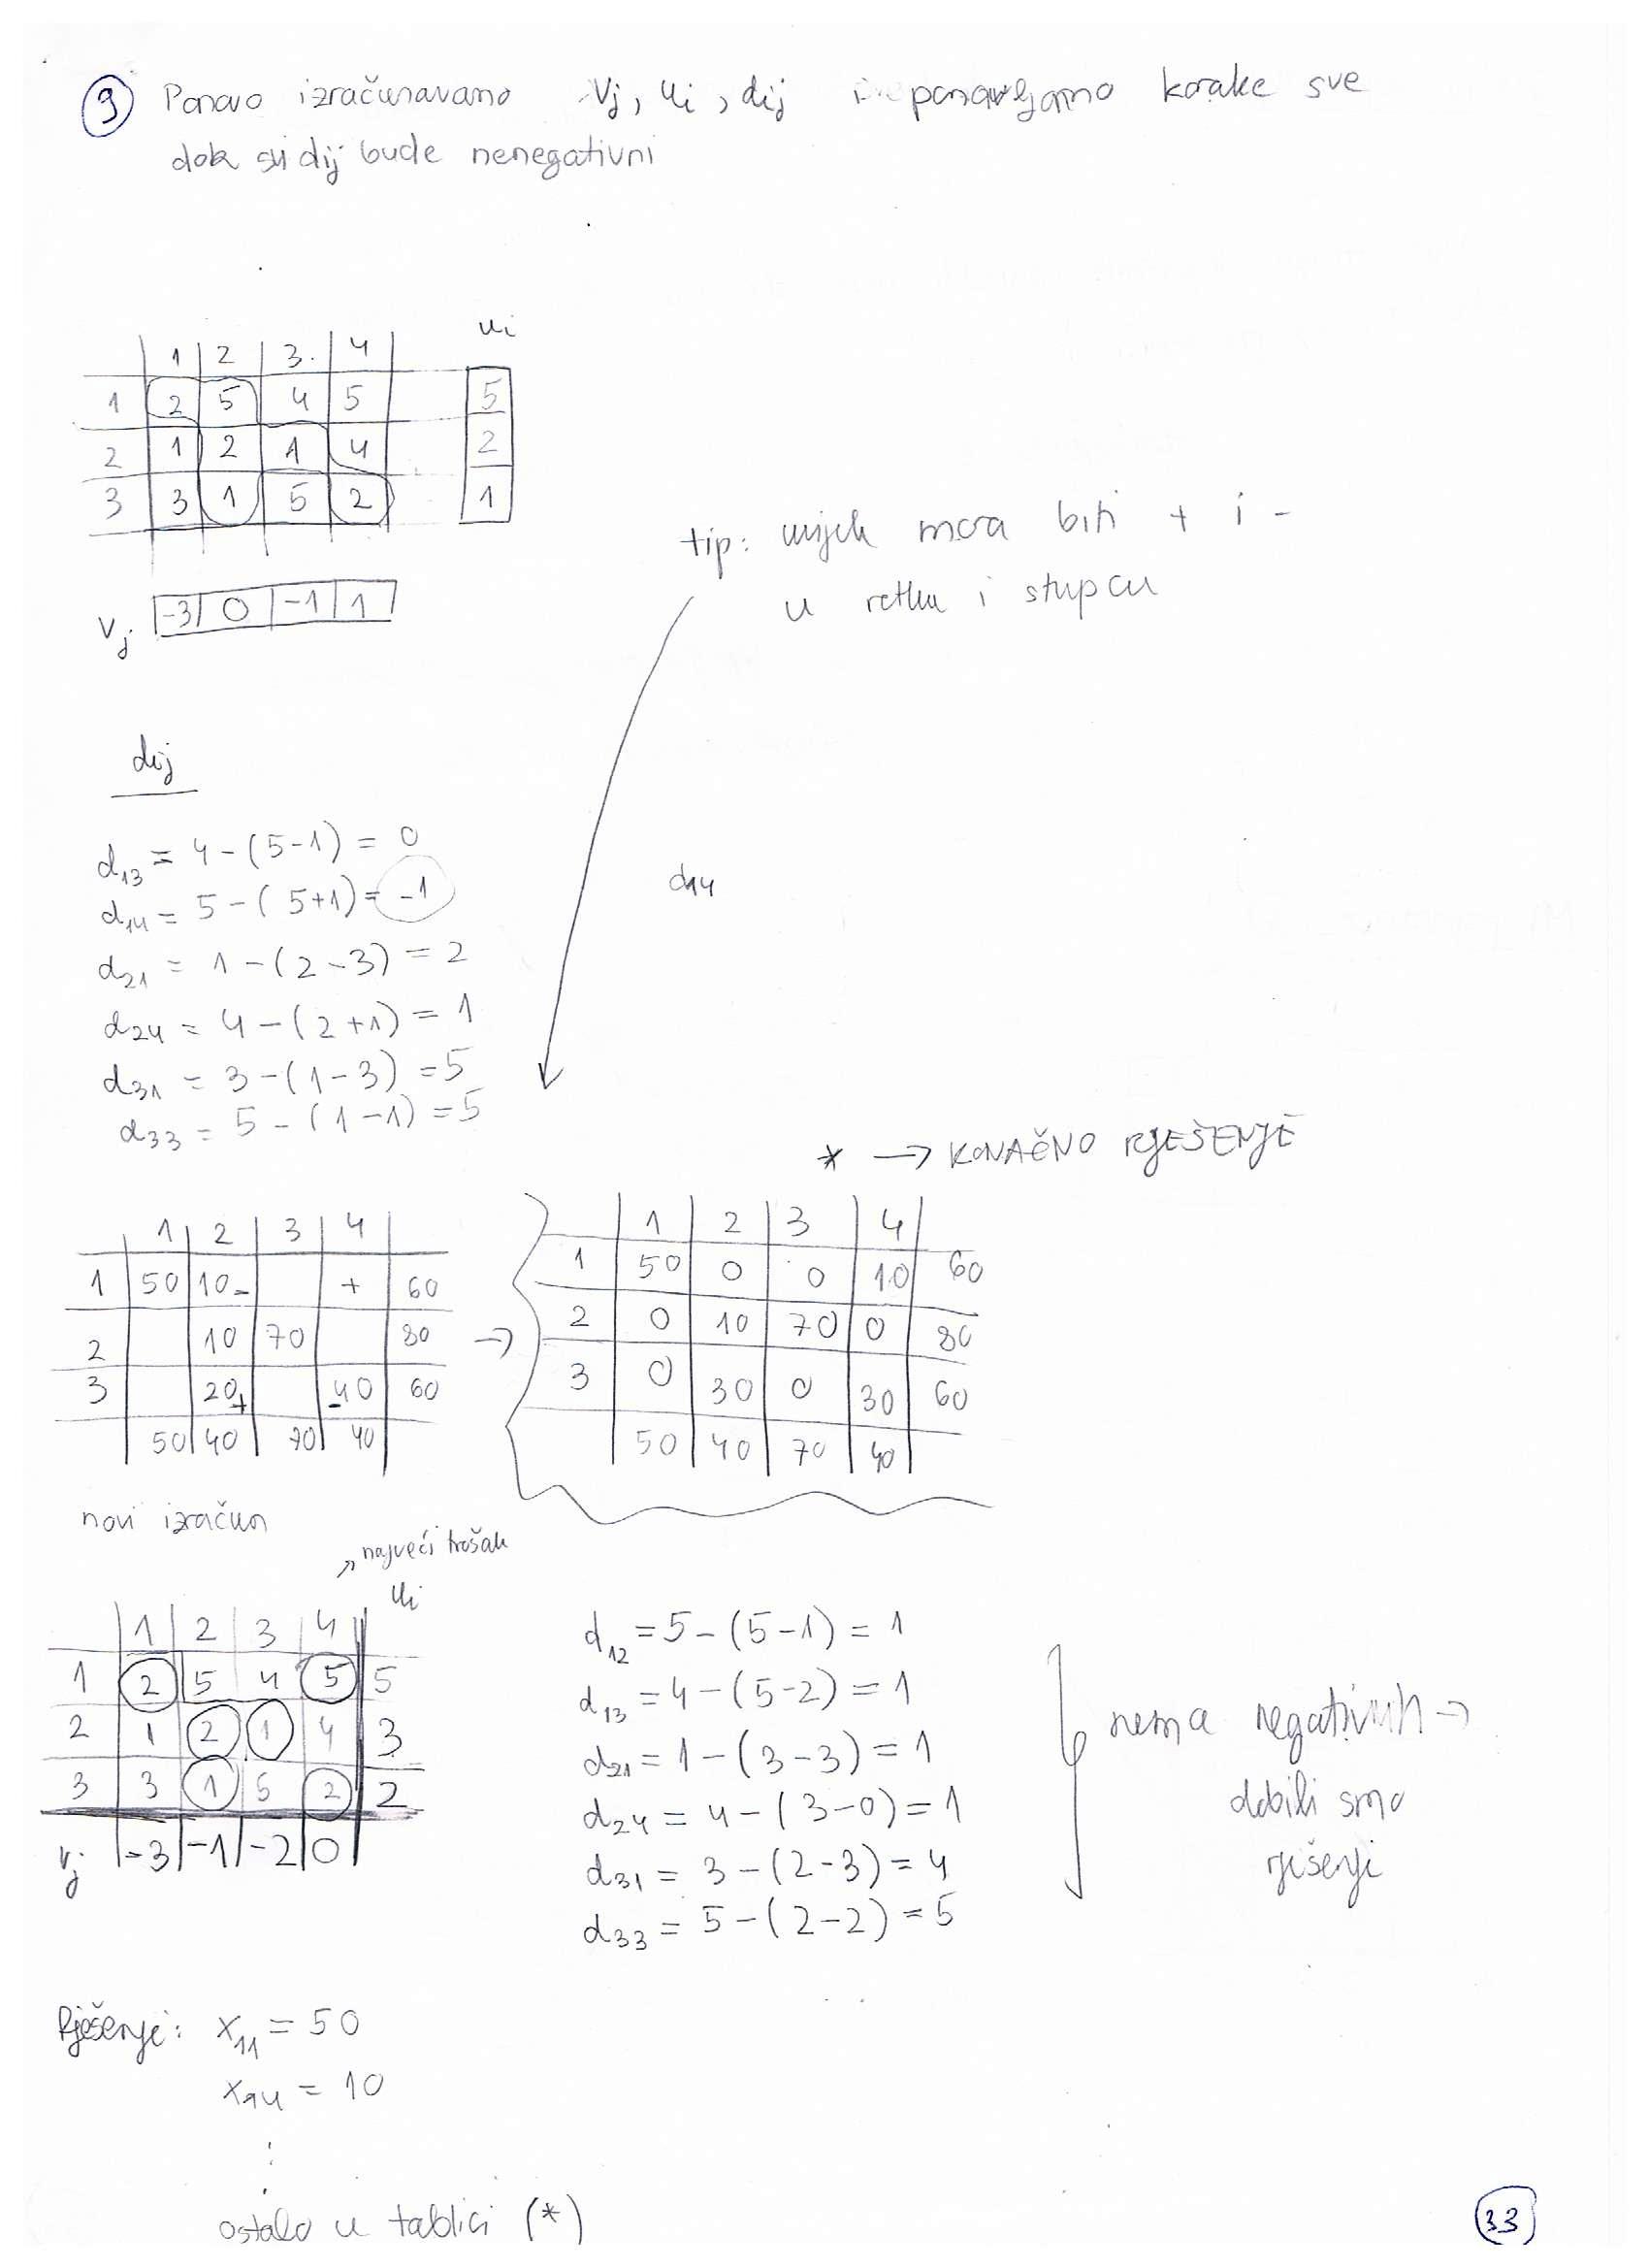 ③ Ponovo izračunavamo Vj, Ui, dij i ponavljamo korake sve
dok svi dij bude nenegativni
ui
1 2 3. 4
1 2 5 4 5 5
2 1 2 1 4 2
3 3 1 5 2 1
Vj -3 0 -1 1
tip: uvijek mora biti + i -
u retku i stupcu
dij
d13 = 4-(5-1) = 0
d14 = 5-(5+1) = -1
d14
d21 = 1-(2-3) = 2
d24 = 4-(2+1) = 1
d31 = 3-(1-3) = 5
d33 = 5-(1-1) = 5
* → KONAČNO RJEŠENJE
1 2 3 4
1 50 10- + 60
2 10 70 80
3 20+ -40 60
50 40 70 40
→
1 2 3 4
1 50 0 0 10 60
2 0 10 70 0 80
3 0 30 0 30 60
50 40 70 40
novi izračun
najveći trošak
Ui
1 2 3 4
1 2 5 4 5 5
2 1 2 1 4 3
3 3 1 5 2 2
Vj -3 -1 -2 0
d12 = 5-(5-1) = 1
d13 = 4-(5-2) = 1
d21 = 1-(3-3) = 1
d24 = 4-(3-0) = 1
d31 = 3-(2-3) = 4
d33 = 5-(2-2) = 5
nema negativnih →
dobili smo
rješenje
Rješenje: x11 = 50
x14 = 10
⋮
ostalo u tablici (*)
33